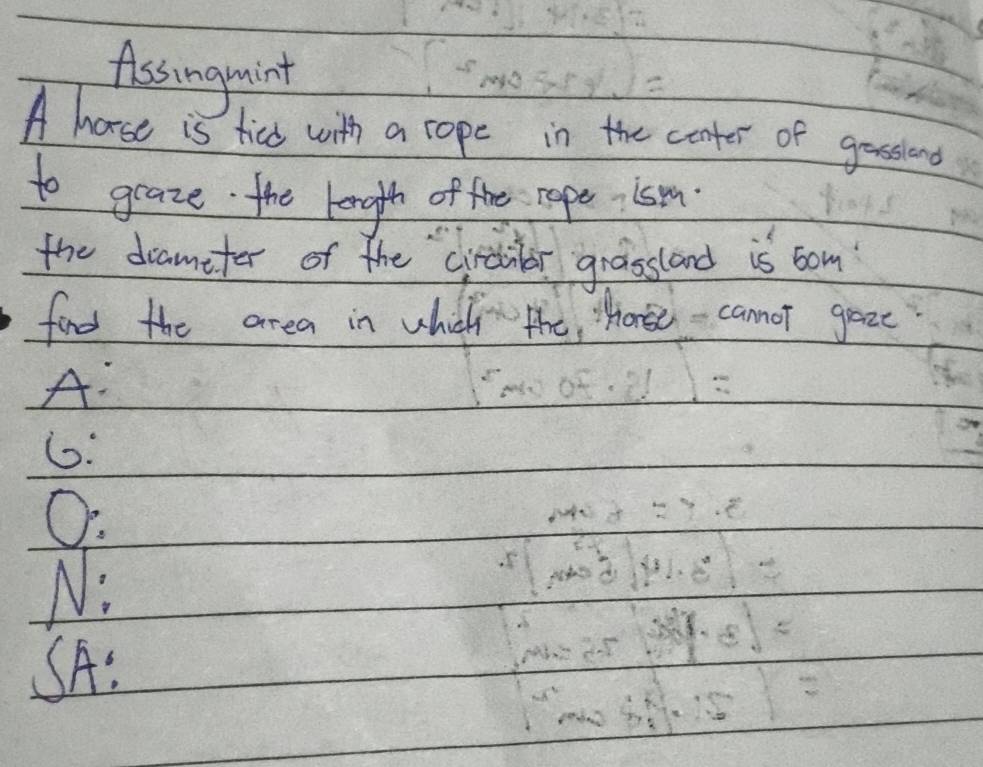 Assingmint
A horse is tied with a rope in the center of grassland
to graze. the length of the rope is m.
the diameter of the circular grassland is 50m
find the area in which the horse cannot graze.
A:
G:
O:
N:
SA: